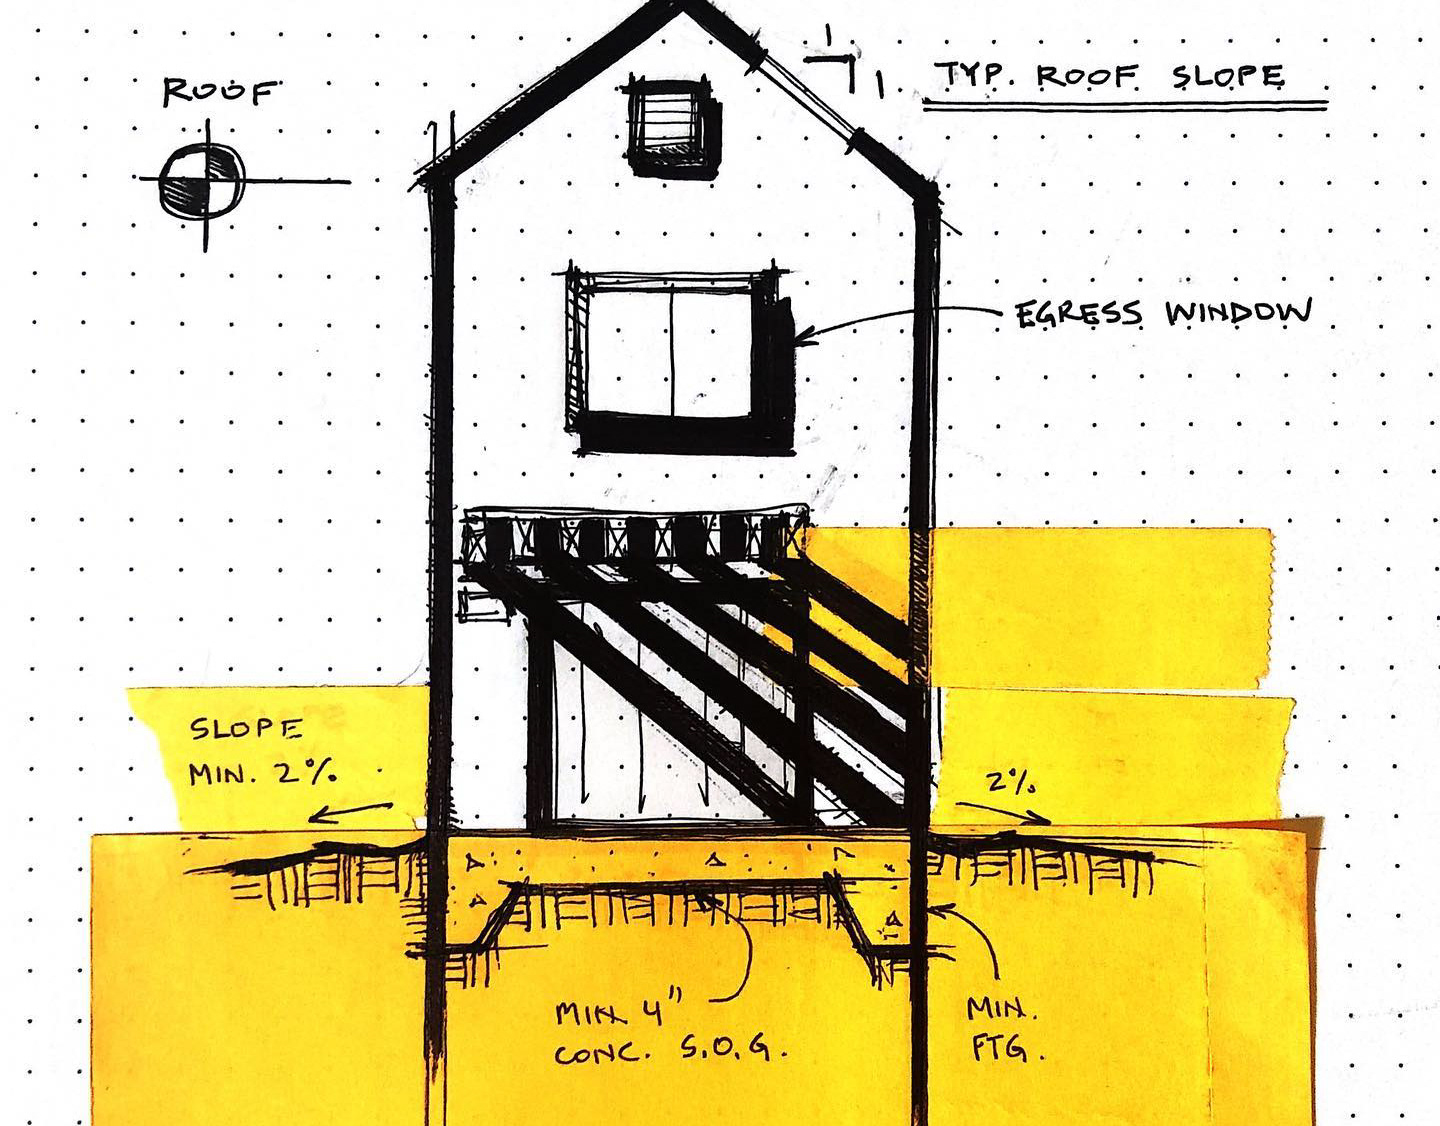 ROOF
TYP. ROOF SLOPE
EGRESS WINDOW
SLOPE
MIN. 2%
2%
MIN. 4"
CONC. S.O.G.
MIN.
FTG.